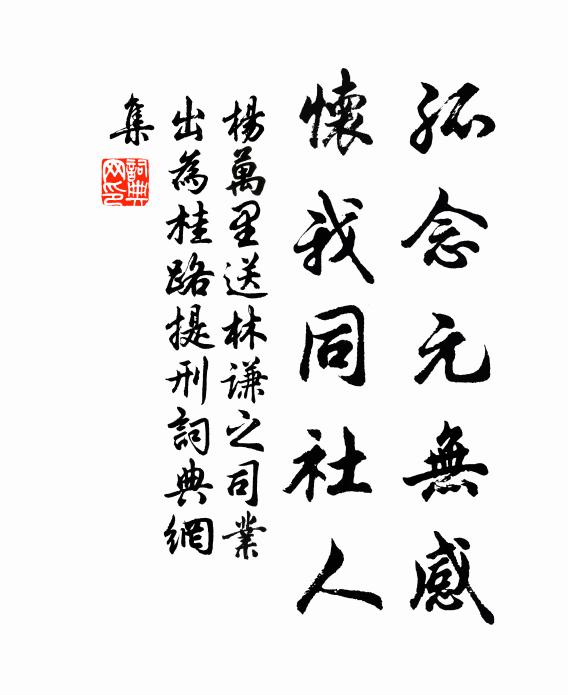 孤念元無感
懷我同社人
楊萬里送林謙之司業
出為桂路提刑詞典網
集
詞典網印